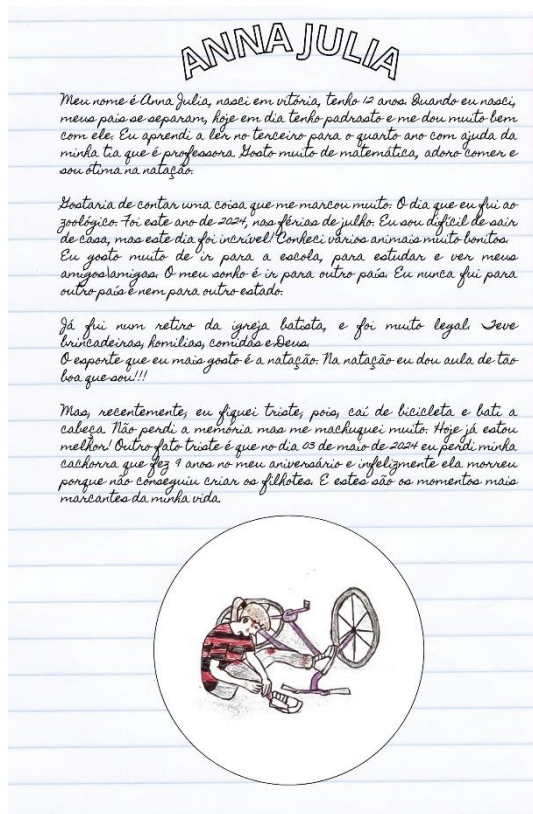 ANNA JULIA
Meu nome é Anna Julia, nasci em vitória, tenho 12 anos. Quando eu nasci,
meus pais se separam, hoje em dia tenho padrasto e me dou muito bem
com ele. Eu aprendi a ler no terceiro para o quarto ano com ajuda da
minha tia que é professora. Gosto muito de matemática, adoro comer e
sou ótima na natação.
Gostaria de contar uma coisa que me marcou muito. O dia que eu fui ao
zoológico. Foi este ano de 2024, nas férias de julho. Eu sou difícil de sair
de casa, mas este dia foi incrível! Conheci vários animais muito bonitos.
Eu gosto muito de ir para a escola, para estudar e ver meus
amigos\amigas. O meu sonho é ir para outro país. Eu nunca fui para
outro país e nem para outro estado.
Já fui num retiro da igreja batista, e foi muito legal. Teve
brincadeiras, homilias, comidas e Deus.
O esporte que eu mais gosto é a natação. Na natação eu dou aula de tão
boa que sou!!!
Mas, recentemente, eu fiquei triste, pois, caí de bicicleta e bati a
cabeça. Não perdi a memória mas me machuquei muito. Hoje já estou
melhor! Outro fato triste é que no dia 03 de maio de 2024 eu perdi minha
cachorra que fez 9 anos no meu aniversário e infelizmente ela morreu
porque não conseguiu criar os filhotes. E estes são os momentos mais
marcantes da minha vida.